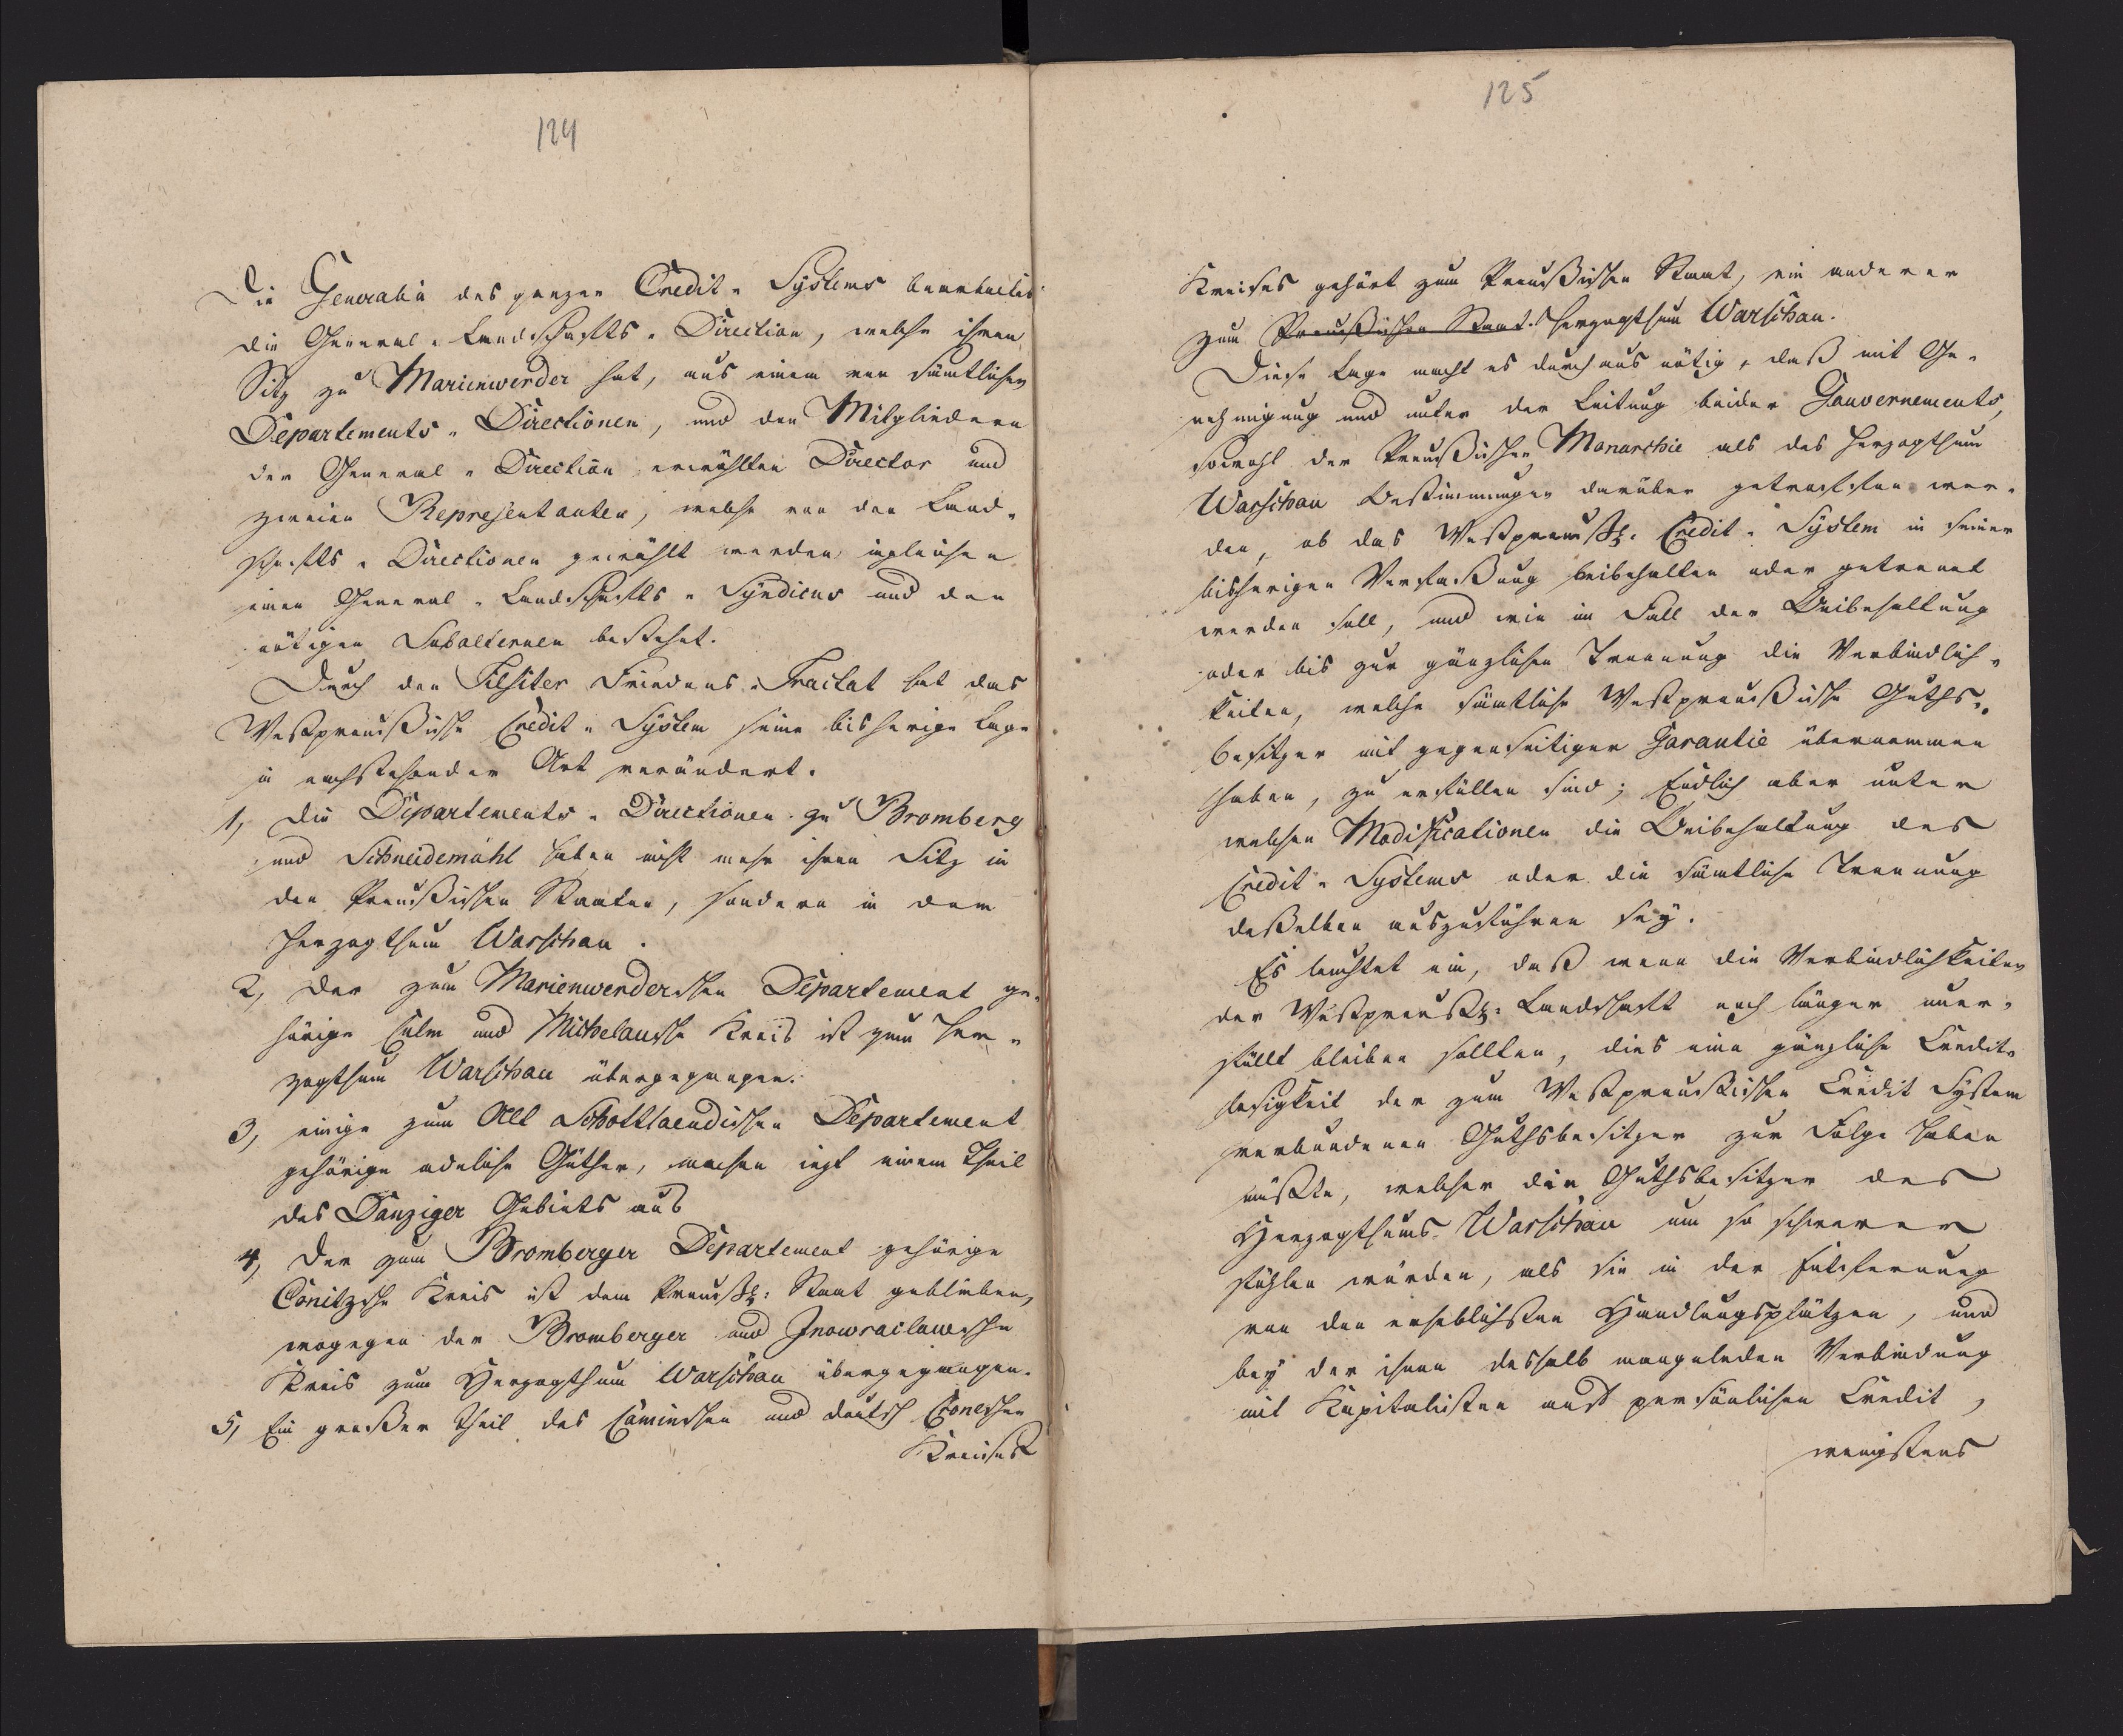 124
Die Generalia des ganzen Credit-Systems bearbeitet
die General-Landschafts-Direction, welche ihren
Sitz zu Marienwerder hat, aus einem von sämtlichen
Departements-Directionen, und den Mitgliedern
der General-Direction erwählten Director und
zweien Representanten, welche von den Land-
schafts-Directionen gewählt werden ingleichen
einen General-Landschafts-Syndicus und den
nötigen Subalternen bestehet.
Durch den Tilsiter Friedens-Tractat hat das
Westpreußische Credit-System seine bisherige Lage
in nachstehender Art verändert.
1, Die Departements-Directionen zu Bromberg
und Schneidemühl haben nicht mehr ihren Sitz in
den Preußischen Staaten, sondern in dem
Herzogthum Warschau.
2, Der zum Marienwerderschen Departement ge-
hörige Culm und Michelausche Kreis ist zum Her-
zogthum Warschau übergegangen.
3, einige zum Alt Schottlaendischen Departement
gehörige adeliche Güther, machen iezt einem Theil
des Danziger Gebiets aus
4, Der zum Bromberger Departement gehörige
Conitzsche Kreis ist dem Preuß: Staat geblieben,
wogegen der Bromberger und Inowraclawsche
Kreis zum Herzogthum Warschau übergegangen.
5, Ein großer Theil des Caminschen und deutsch Croneschen
Kreises
125
Kreises gehört zum Preußischen Staat, ein anderer
zum Preußischen Staat. Herzogthum Warschau.
Diese Lage macht es durchaus nötig, daß mit Ge-
nehmigung und unter der Leitung beider Gouvernements,
sowohl der Preußischen Monarchie als des Herzogthum
Warschau Bestimmungen darüber getroffen wer-
den, ob das Westpreuß: Credit-System in seiner
bisherigen Verfaßung beibehalten oder getrennt
werden soll, und wie im Fall der Beibehaltung
oder bis zur gänzlichen Trennung die Verbindlich-
keiten, welche sämtliche Westpreußische Guths-
besitzer mit gegenseitiger Garantie übernommen
haben, zu erfüllen sind; Endlich aber unter
welchen Modificationen die Beibehaltung des
Credit-Systems oder die sämtliche Trennung
deßelben auszuführen sey.
Es leuchtet ein, daß wenn die Verbindlichkeiten
der Westpreuß: Landschaft noch länger uner-
füllt bleiben sollten, dies eine gänzliche Credit-
losigkeit der zum Westpreußischen Credit System
verbundenen Guthsbesitzer zur Folge haben
müßte, welcher die Guthsbesitzer des
Herzogthums Warschau um so schwerer
fühlen würden, als sie in der Entfernung
von den erheblichsten Handlungsplätzen, und
bey der ihnen deshalb mangelnden Verbindung
mit Kapitalisten auf persönlichen Credit,
wenigstens